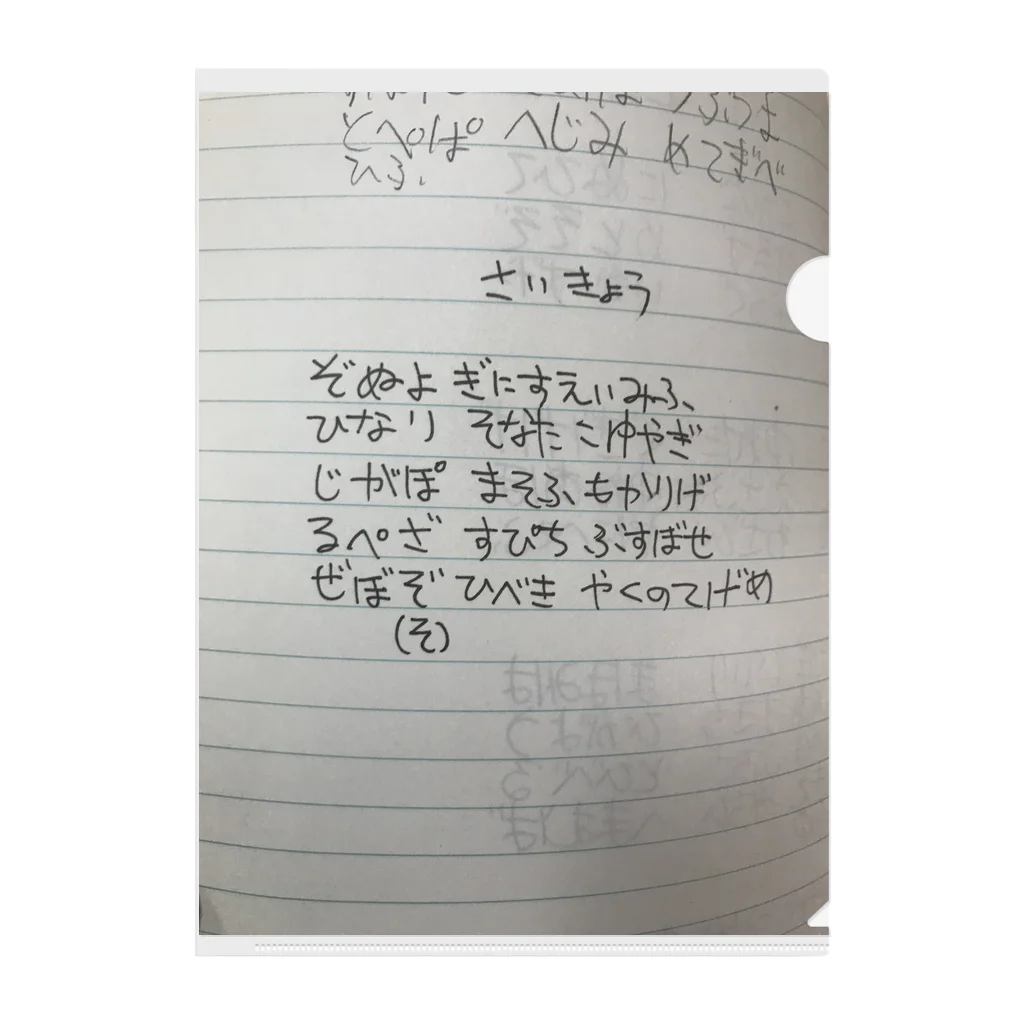 とぺぱ へじみ めてぎべ
ひふ
さいきょう
ぞぬよ ぎにすえいみふ
ひなり そなた こゆやぎ
じがぽ まそふ もかりげ
るぺざ すぴち ぶすばせ
ぜぼぞ ひべき やくのてげめ
(そ)